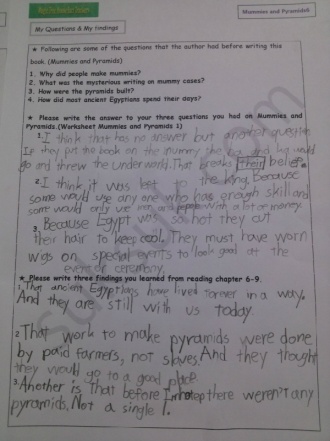 Mummies and Pyramids
My Questions & My findings
★ Following are some of the questions that the author had before writing this
book. (Mummies and Pyramids)
1. Why did people make mummies?
2. What was the mysterious writing on mummy cases?
3. How were the pyramids built?
4. How did most ancient Egyptians spend their days?
★ Please write the answer to your three questions you had on Mummies and
Pyramids.(Worksheet Mummies and Pyramids 1)
1. I think that has no answer but another question
If they put the book on the mummy she and he would
go and threw the underworld. That breaks their belief.
2. I think it was to the king, because
some would use any one who has enough skill and
some would only use with a lot or money.
3. Because Egypt was so hot they cut
their hair to keep cool. They must have worn
wigs on special events to look good at the
event or ceremony.
★ Please write three findings you learned from reading chapter 6-9.
1. That ancient Egyptians have lived forever in a way.
And they are still with us today.
2. That work to make pyramids were done
by paid farmers, not slaves. And they thought
they would go to a good place.
3. Another is That before Imhotep there weren't any
pyramids. Not a single 1.